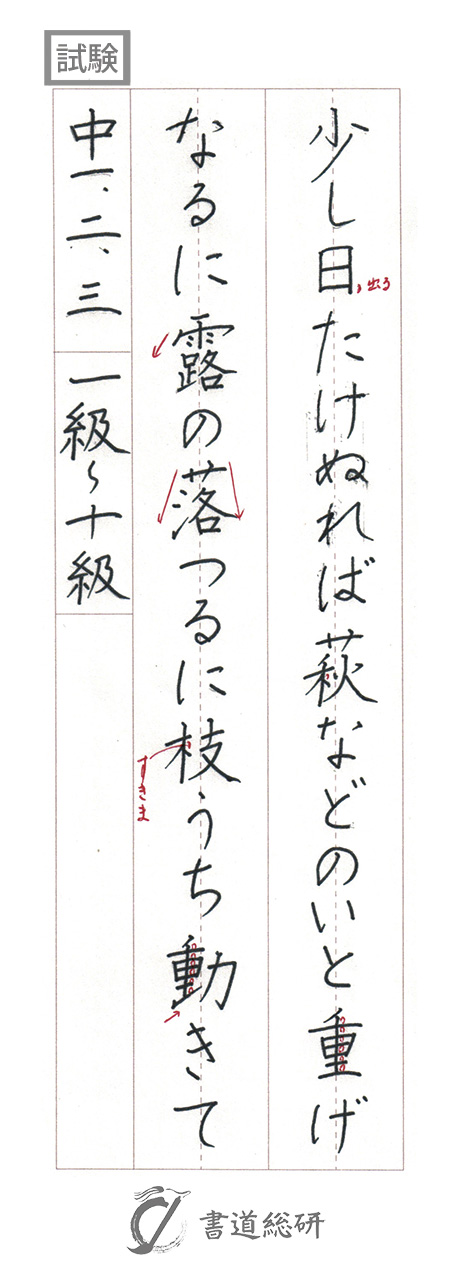 試験
少し日たけぬれば萩などのいと重げ
なるに露の落つるに枝うち動きて
中一、二、三 一級〜十級
出る
すきま
書道総研